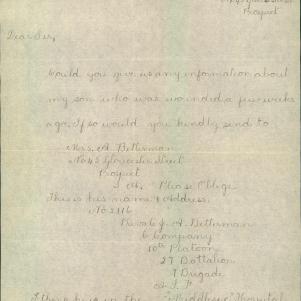 Prospect
Dear Sir,
Would you give us any information about
my son who was wounded a few weeks
ago, If so would you kindly send to
Mrs. A. Betterman
No 45 Gloucester Street
Prospect
Please Oblige
This is his name & Address.
No 2116
Private A. Betterman
C Company
10th Platoon
27 Battalion
7 Brigade
A. I. F
I think he is in the Hospital